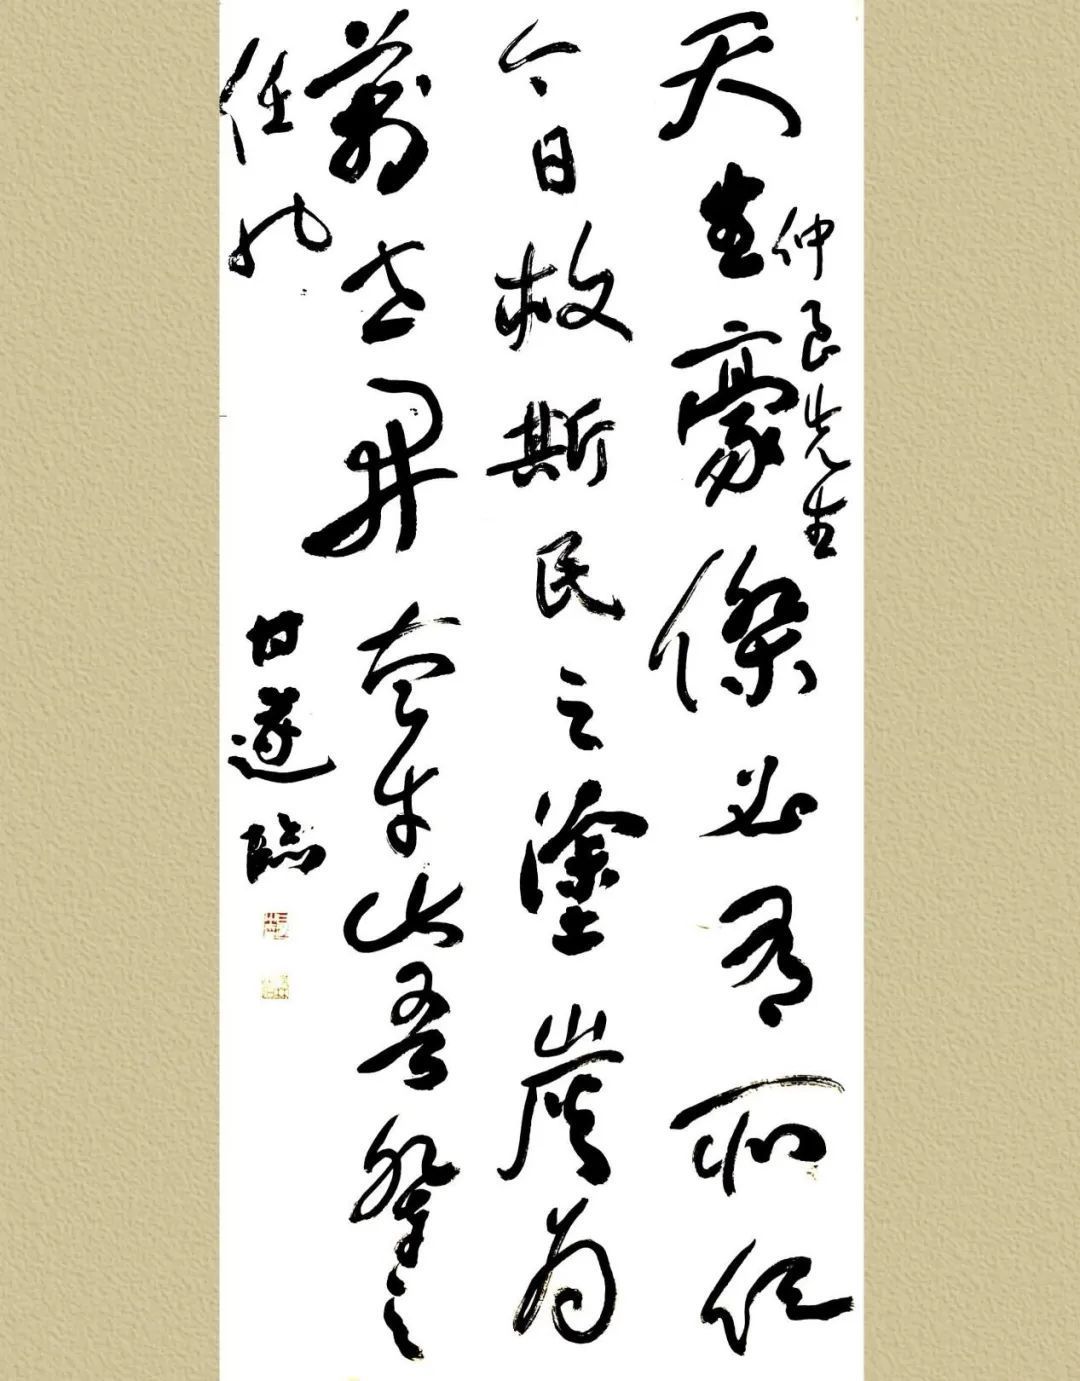 仲良先生
天生豪傑必有所任
今日救斯民之塗炭為
萬世開太平此吾輩之
任也
臨